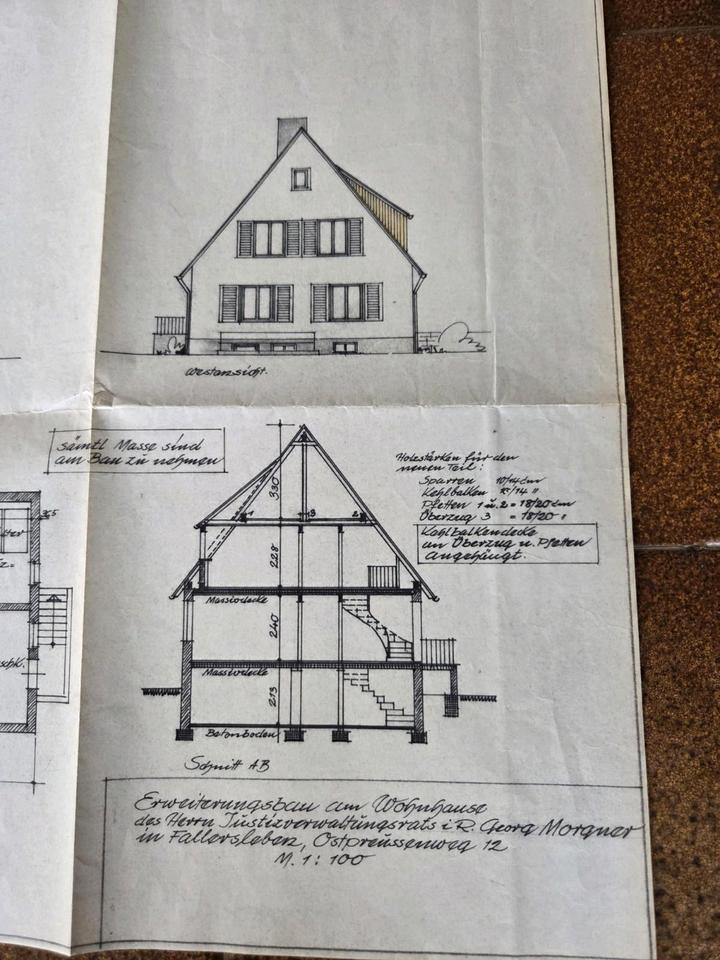 Westansicht.
sämtl Masse sind
am Bau zu nehmen
Holzstärken für den
neuen Teil:
Sparren 10/14 cm
Kehlbalken /14 "
Pfetten 1 u. 2 = 18/20 cm
Überzug 3 = 18/20 "
Kehlbalkendecke
an Überzug u. Pfetten
angehängt.
330
1 3 2
228
Massivdecke
240
Massivdecke
213
Betonboden
36,5
Schnitt AB
Erweiterungsbau am Wohnhause
des Herrn Justizverwaltungsrats i.R. Georg Morgner
in Fallersleben, Ostpreussenweg 12
M. 1:100